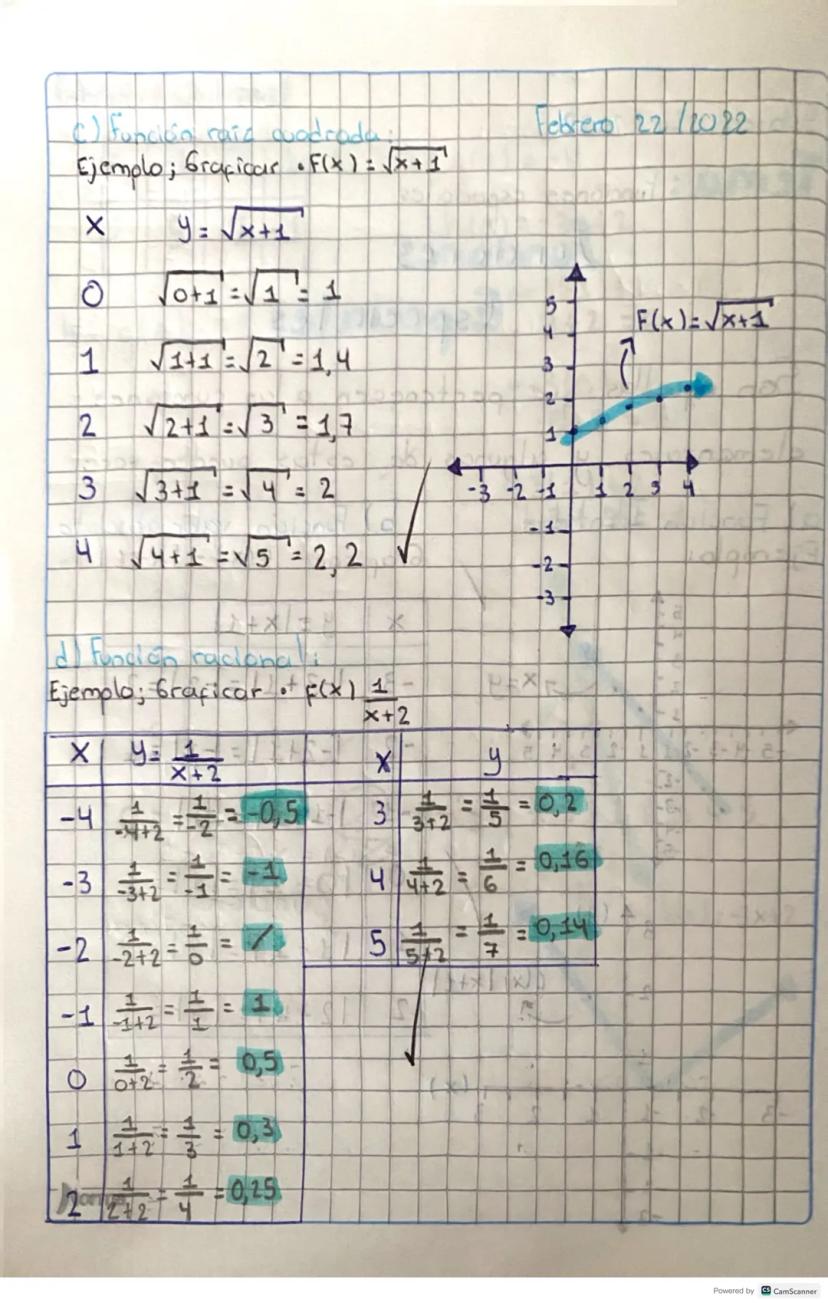 c) Función raíz cuadrada: Febrero 22/2022
Ejemplo; Graficar • F(x) = √x+1
x y = √x+1
0 √0+1 = √1 = 1
1 √1+1 = √2 = 1,4
2 √2+1 = √3 = 1,7
3 √3+1 = √4 = 2
4 √4+1 = √5 = 2,2
F(x) = √x+1
5
4
3
2
1
-3 -2 -1 1 2 3 4
-1
-2
-3
d) Función racional:
Ejemplo; Graficar • F(x) 1/x+2
x y = 1/x+2
-4 1/-4+2 = 1/-2 = -0,5
-3 1/-3+2 = 1/-1 = -1
-2 1/-2+2 = 1/0 = /
-1 1/-1+2 = 1/1 = 1
0 1/0+2 = 1/2 = 0,5
1 1/1+2 = 1/3 = 0,3
2 1/2+2 = 1/4 = 0,25
x y
3 1/3+2 = 1/5 = 0,2
4 1/4+2 = 1/6 = 0,16
5 1/5+2 = 1/7 = 0,14
Powered by CS CamScanner